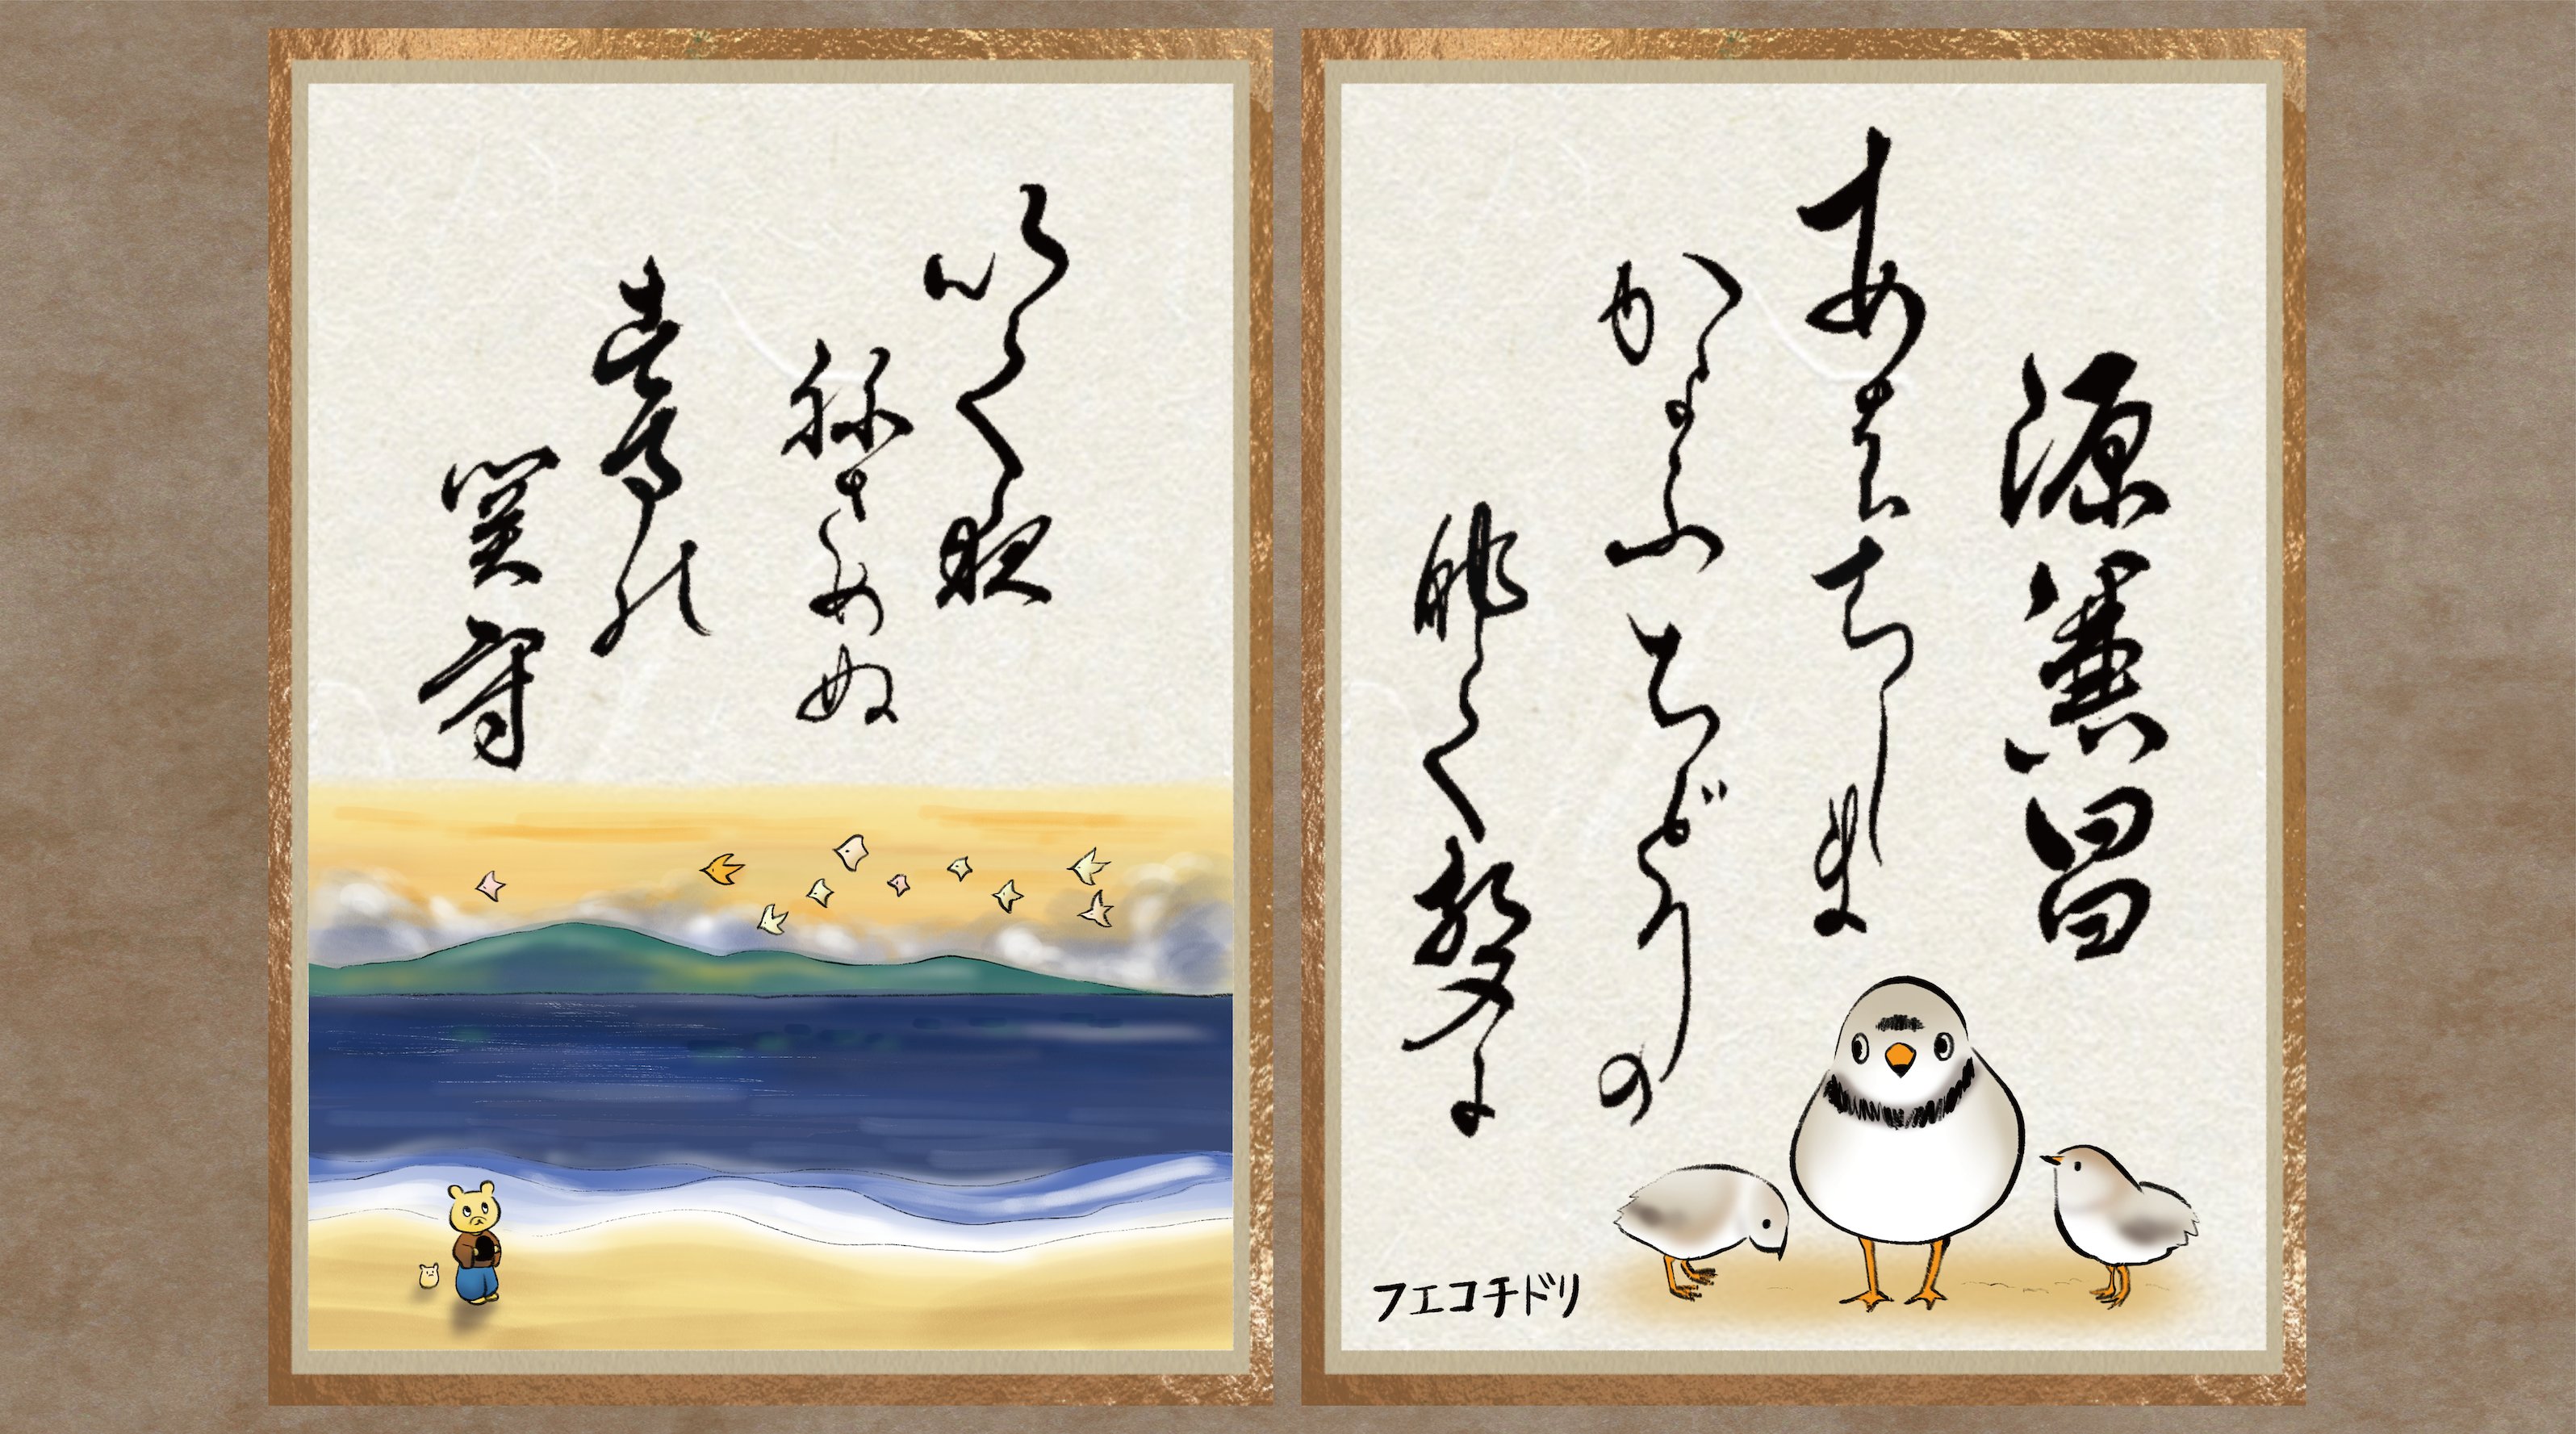 源兼昌
あはちしま
かよふちどりの
鳴く聲に
フエコチドリ
いく夜
ねさめぬ
須磨の
関守